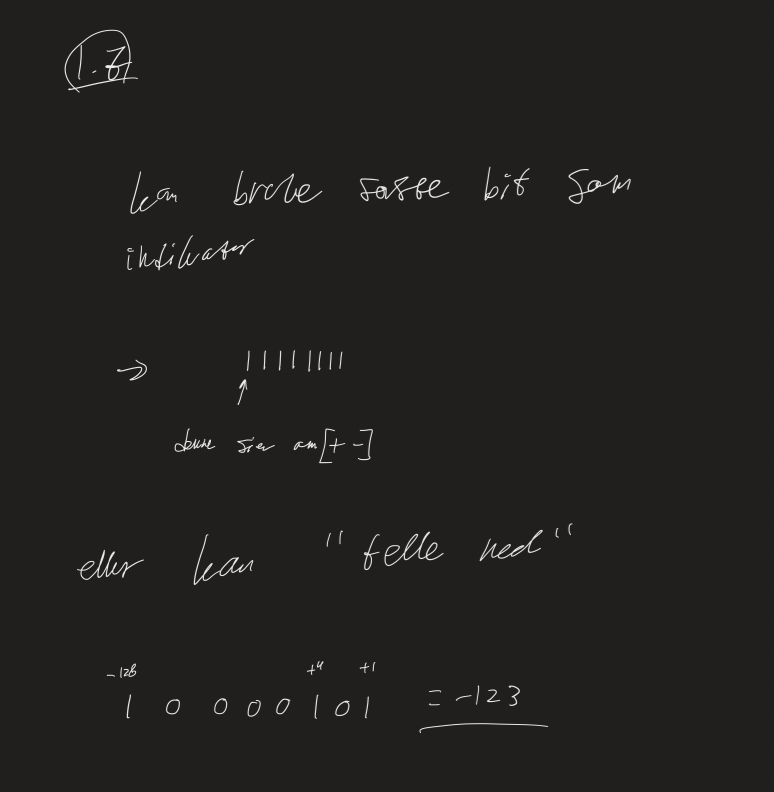 1.7
kan bruke første bit som
indikator
→ 11111111
↑
denne sier om [+ -]
eller kan "telle ned"
-128 +4 +1
1 0 0 0 0 1 0 1 = -123